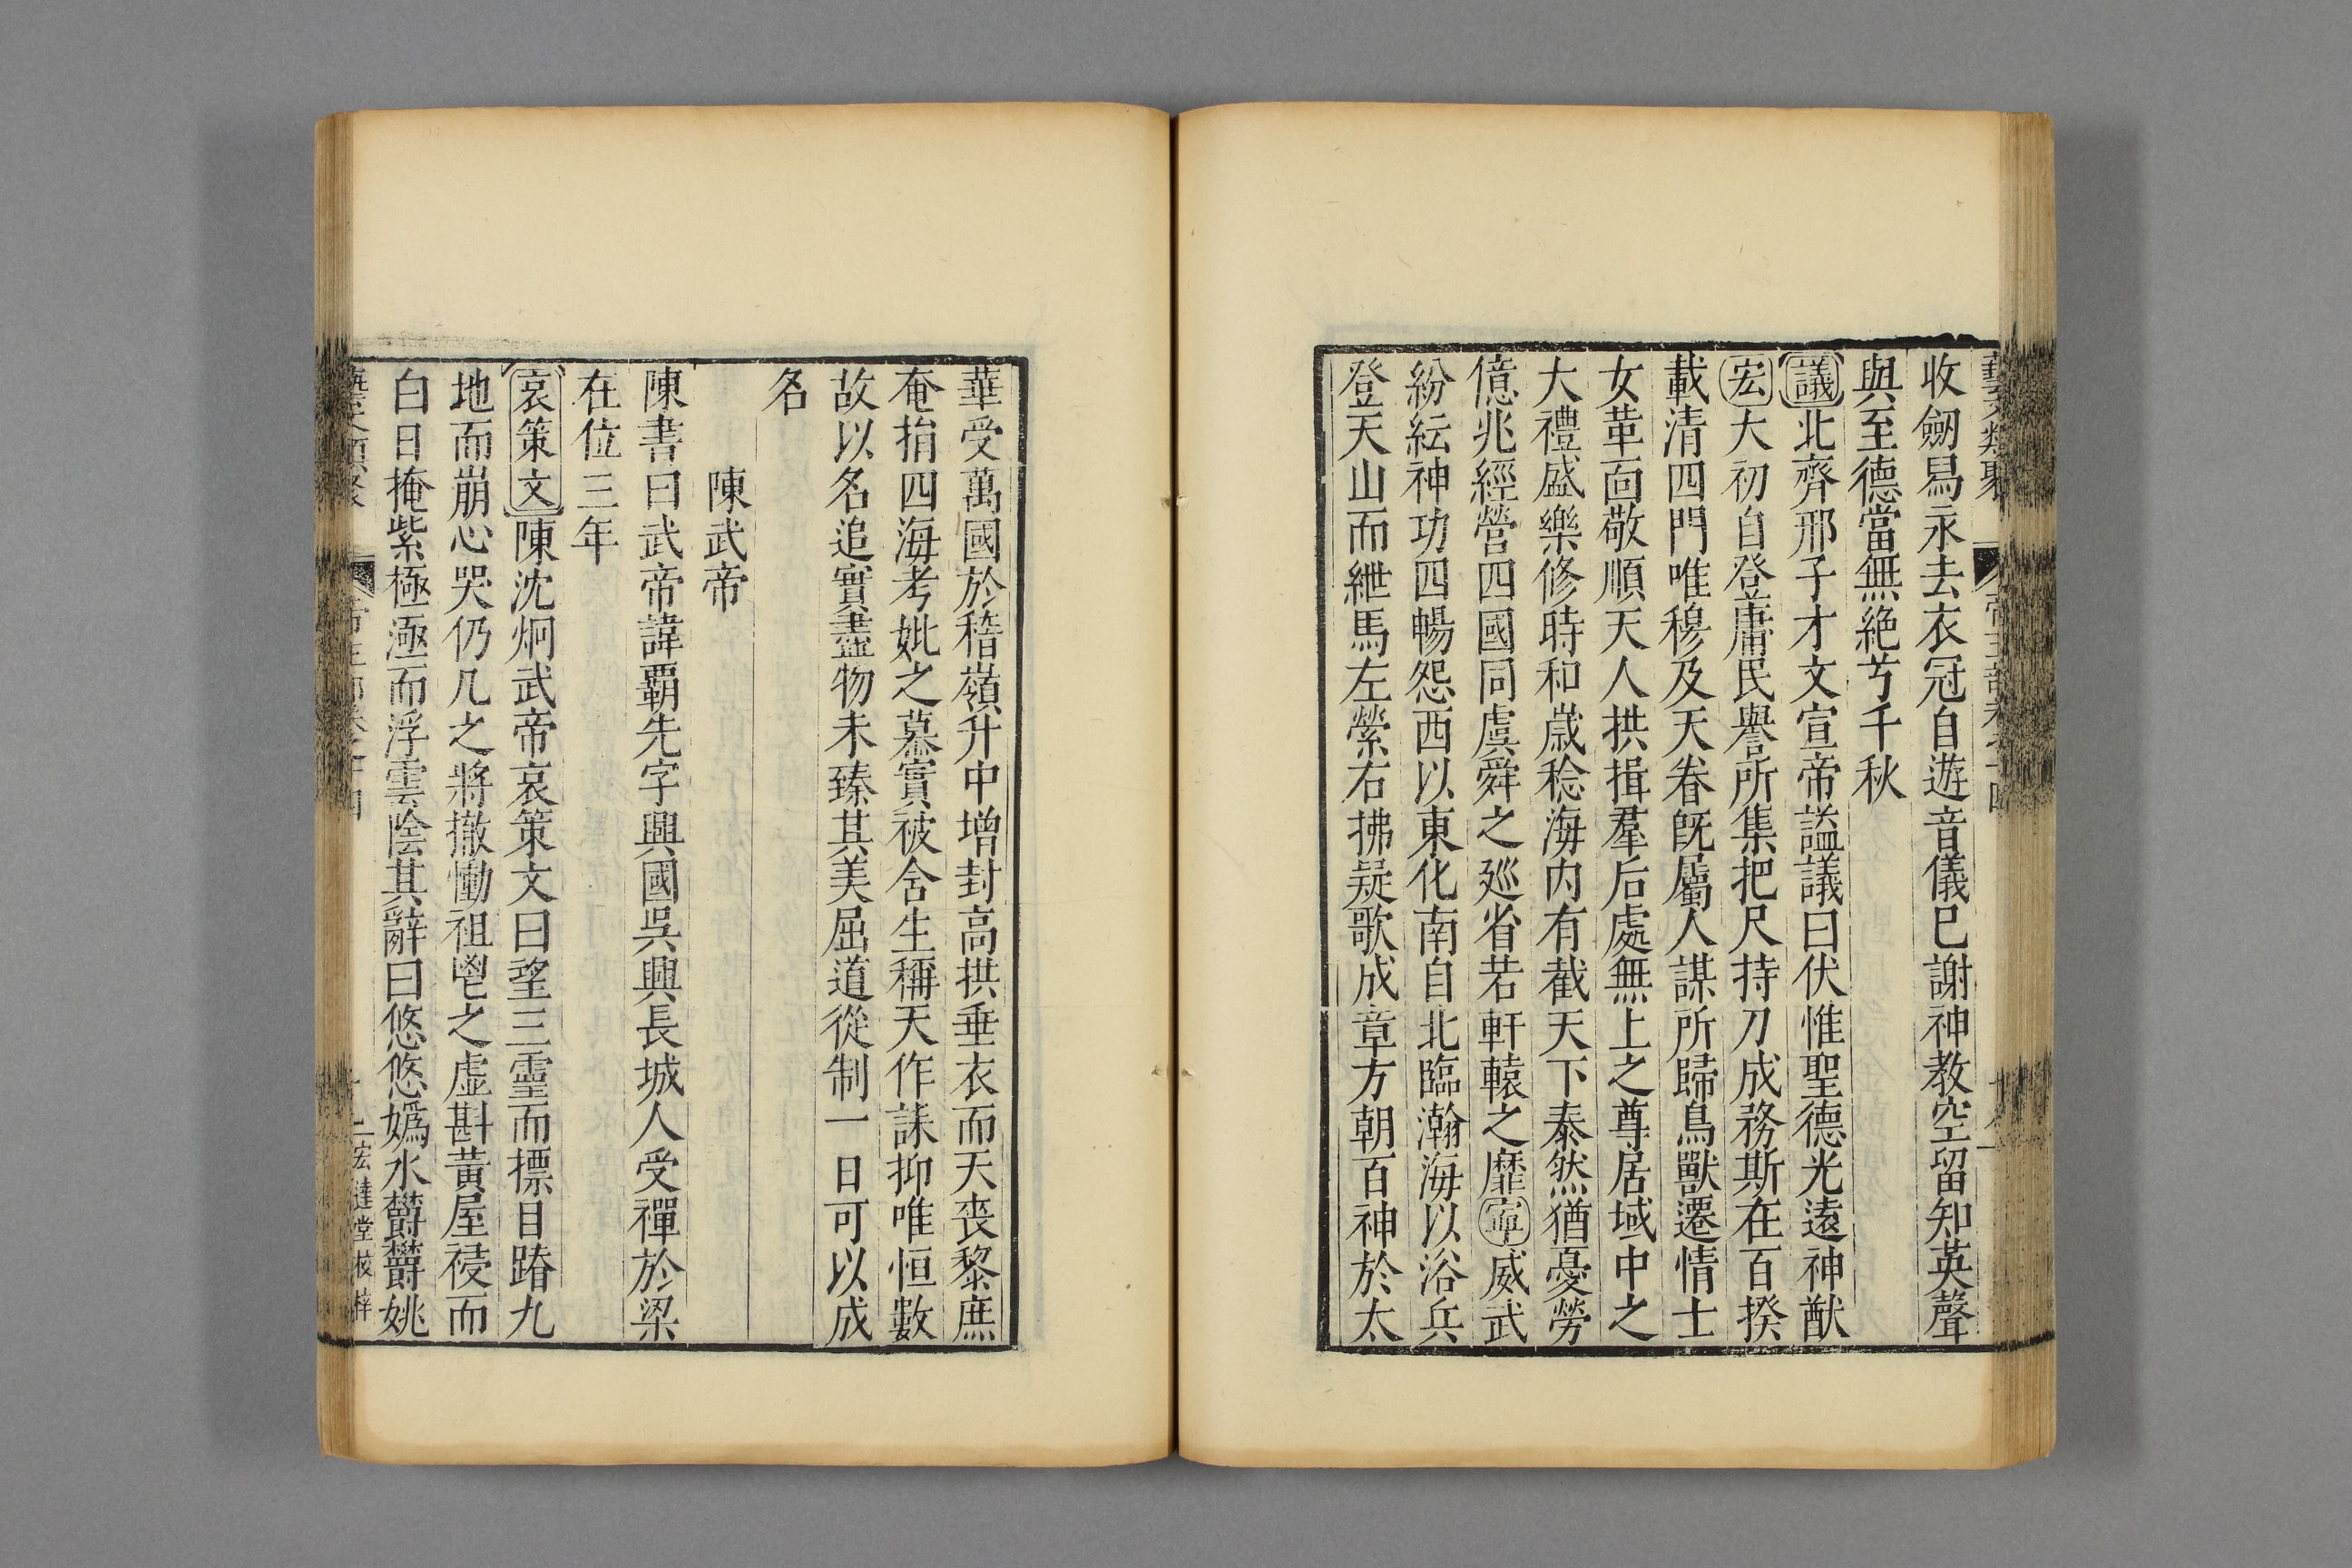 收劒舃永去衣冠自遊音儀巳謝神教空留知英聲
與至德當無絶芳千秋
議北齊邢子才文宣帝謚議曰伏惟聖德光遠神猷
宏大初自登庸民譽所集把尺持刀成務斯在百揆
載清四門唯穆及天眷旣屬人謀所歸鳥獸遷情士
女革面敬順天人拱揖羣后處無上之尊居域中之
大禮盛樂修時和歳稔海内有截天下泰然猶憂勞
億兆經營四國同虞舜之廵省若軒轅之靡寧威武
紛紜神功四暢怨西以東化南自北臨瀚海以浴兵
登天山而絏馬左縈右拂疑歌成章方朝百神於太
華受萬國於稽嶺升中增封高拱垂衣而天丧黎庶
奄捐四海考妣之慕實被含生稱天作誄抑唯恒數
故以名追實盡物未臻其美屈道從制一日可以成
名
陳武帝
陳書曰武帝諱覇先字興國吳興長城人受禪於梁
在位三年
哀策文陳沈炯武帝哀策文曰望三靈而摽目蹐九
地而崩心哭仍几之將撤慟祖鬯之虛斟黃屋祲而
白日掩紫極極而浮雲陰其辭曰悠悠嬀水欝欝姚